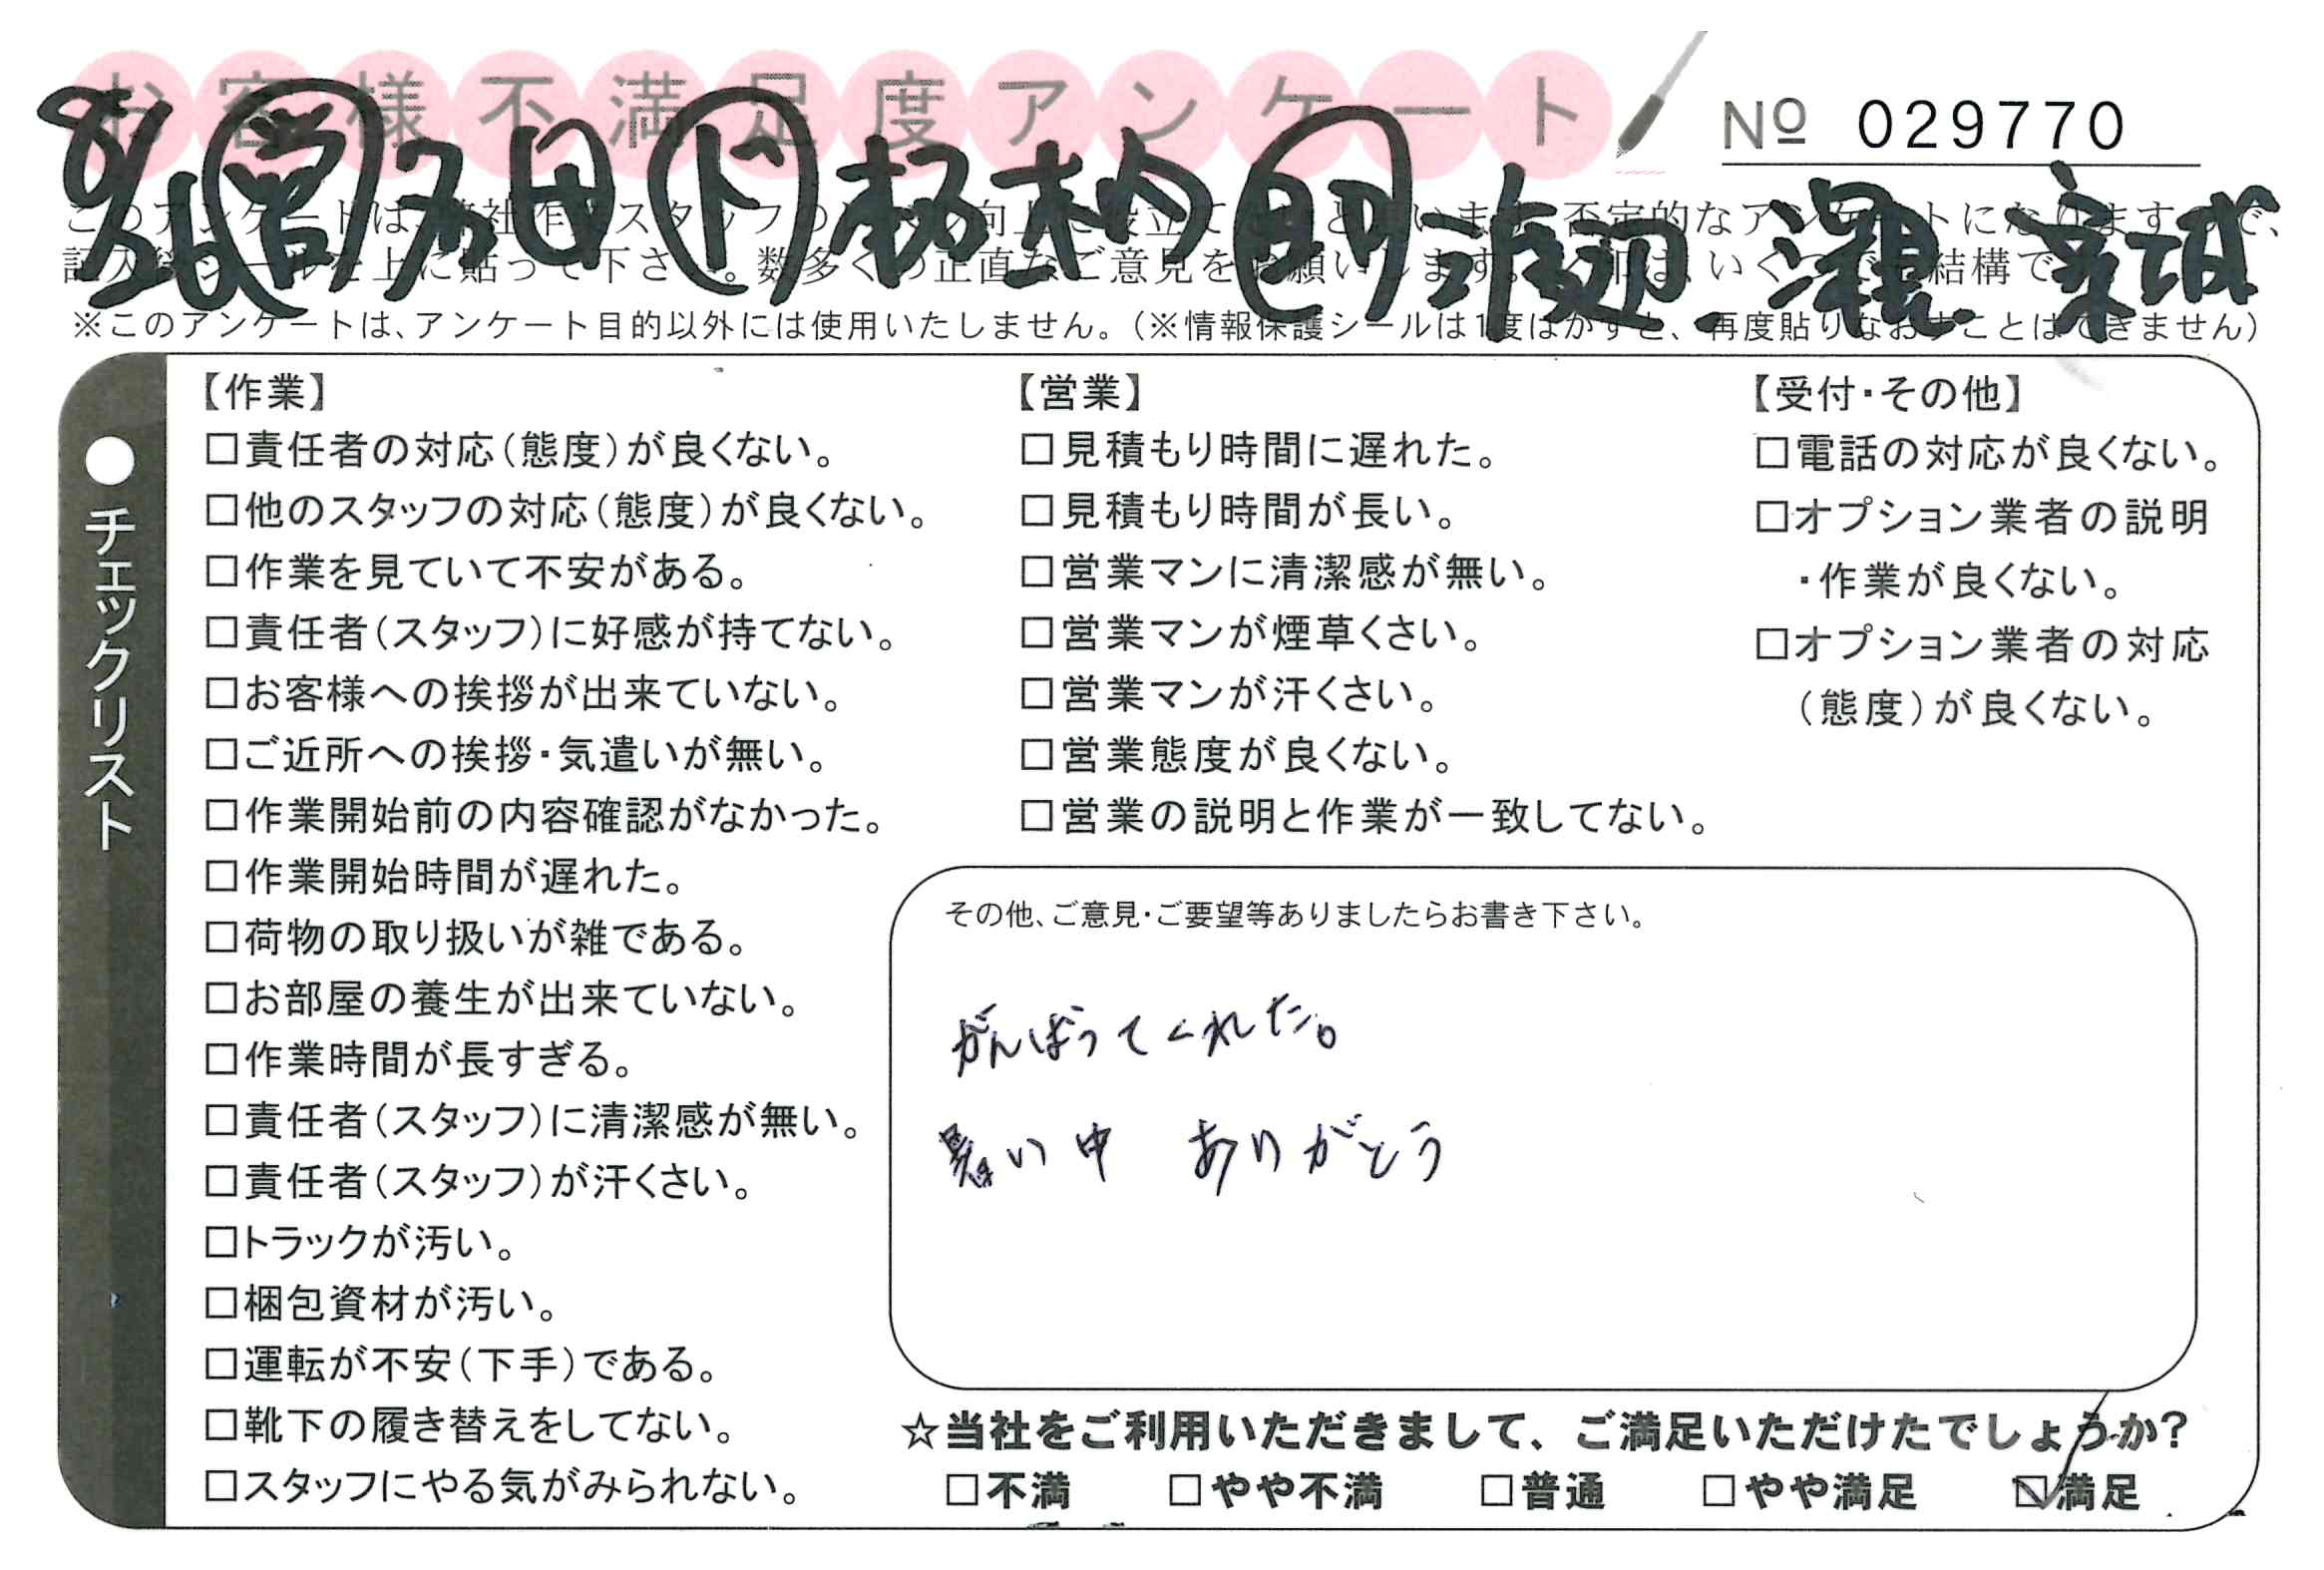 お客様不満足度アンケート
№ 029770
8/26 営 多田 ト 助 渡辺
※このアンケートは、アンケート目的以外には使用いたしません。(※情報保護シールは1度はがすと、再度貼りなおすことはできません)
●チェックリスト
【作業】
□責任者の対応(態度)が良くない。
□他のスタッフの対応(態度)が良くない。
□作業を見ていて不安がある。
□責任者(スタッフ)に好感が持てない。
□お客様への挨拶が出来ていない。
□ご近所への挨拶・気遣いが無い。
□作業開始前の内容確認がなかった。
□作業開始時間が遅れた。
□荷物の取り扱いが雑である。
□お部屋の養生が出来ていない。
□作業時間が長すぎる。
□責任者(スタッフ)に清潔感が無い。
□責任者(スタッフ)が汗くさい。
□トラックが汚い。
□梱包資材が汚い。
□運転が不安(下手)である。
□靴下の履き替えをしてない。
□スタッフにやる気がみられない。
【営業】
□見積もり時間に遅れた。
□見積もり時間が長い。
□営業マンに清潔感が無い。
□営業マンが煙草くさい。
□営業マンが汗くさい。
□営業態度が良くない。
□営業の説明と作業が一致してない。
【受付・その他】
□電話の対応が良くない。
□オプション業者の説明
・作業が良くない。
□オプション業者の対応
(態度)が良くない。
その他、ご意見・ご要望等ありましたらお書き下さい。
がんばってくれた。
暑い中 ありがとう
☆当社をご利用いただきまして、ご満足いただけたでしょうか?
□不満 □やや不満 □普通 □やや満足 ☑満足